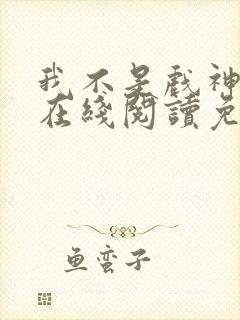 我不是戲神
在綫閱讀免
鱼蛮子